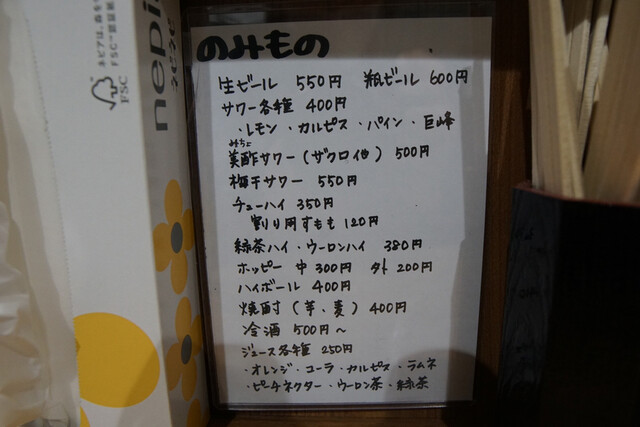 のみもの
生ビール 550円 瓶ビール 600円
サワー各種 400円
・レモン・カルピス・パイン・巨峰
みちょ
美酢サワー(ザクロ他) 500円
梅干サワー 550円
チューハイ 350円
割り用すもも 120円
緑茶ハイ・ウーロンハイ 380円
ホッピー 中300円 外200円
ハイボール 400円
焼酎(芋、麦) 400円
冷酒 500円〜
ジュース各種 250円
・オレンジ・コーラ・カルピス・ラムネ
・ピーチネクター・ウーロン茶・緑茶
nepi
ネピネピ
FSC